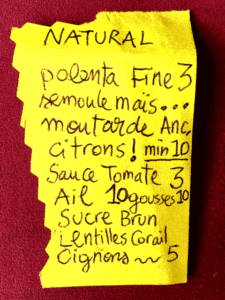 NATURAL
polenta Fine 3
semoule maïs...
moutarde Anc,
citrons! min 10
Sauce Tomate 3
Ail 10 gousses 10
Sucre Brun
Lentilles Corail
Oignons ~ 5